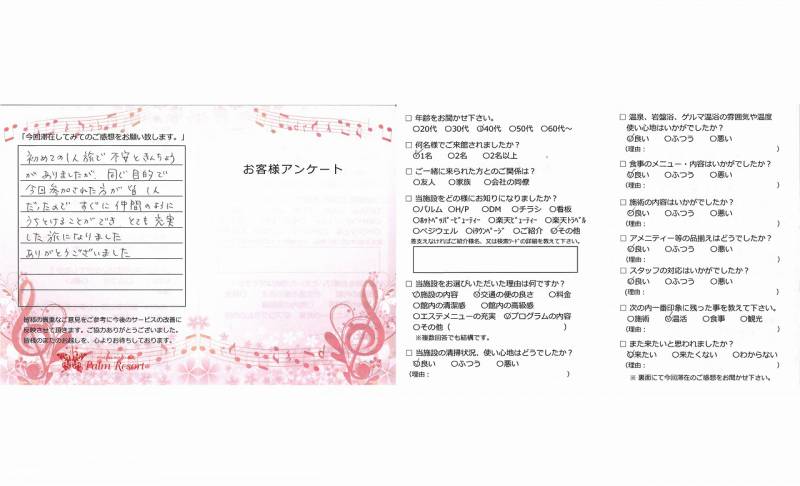 「今回滞在してみてのご感想をお願い致します。」
初めての1人旅で不安ときんちょう
がありましたが、同じ目的で
今回参加された方が皆1人
だったので すぐに仲間のように
うちとけることができ とても充実
した旅になりました
ありがとうございました
皆様の貴重なご意見をご参考に今後のサービスの改善に
反映させて頂きます。ご協力ありがとうございました。
皆様のまたのお越しを、心よりお待ちしております。
Palm Resort
お客様アンケート
□ 年齢をお聞かせ下さい。
○20代 ○30代 ○40代 ○50代 ○60代～
□ 何名様でご来館されましたか？
○1名 ○2名 ○2名以上
□ ご一緒に来られた方とのご関係は？
○友人 ○家族 ○会社の同僚
□ 当施設をどの様にお知りになりましたか？
○パルム ○H/P ○DM ○チラシ ○看板
○ホットペッパービューティー ○楽天ビューティー ○楽天トラベル
○ベジウェル ○iタウンページ ○ご紹介 ○その他
差支えなければご紹介様名、又は検索ワードの詳細を教えて下さい。
□ 当施設をお選びいただいた理由は何ですか？
○施設の内容 ○交通の便の良さ ○料金
○館内の清潔感 ○館内の高級感
○エステメニューの充実 ○プログラムの内容
○その他（ ）
※複数回答でも結構です。
□ 当施設の清掃状況、使い心地はどうでしたか？
○良い ○ふつう ○悪い
（理由： ）
□ 温泉、岩盤浴、ゲルマ温浴の雰囲気や温度
使い心地はいかがでしたか？
○良い ○ふつう ○悪い
（理由： ）
□ 食事のメニュー・内容はいかがでしたか？
○良い ○ふつう ○悪い
（理由： ）
□ 施術の内容はいかがでしたか？
○良い ○ふつう ○悪い
（理由： ）
□ アメニティー等の品揃えはどうでしたか？
○良い ○ふつう ○悪い
（理由： ）
□ スタッフの対応はいかがでしたか？
○良い ○ふつう ○悪い
（理由： ）
□ 次の内一番印象に残った事を教えて下さい。
○施術 ○温活 ○食事 ○観光
（理由： ）
□ また来たいと思われましたか？
○来たい ○来たくない ○わからない
（理由： ）
※ 裏面にて今回滞在のご感想をお聞かせ下さい。